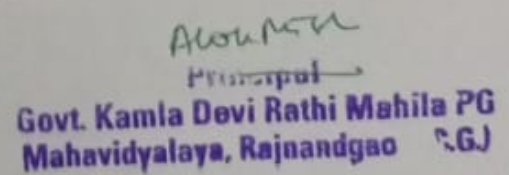 Principal
Govt. Kamla Devi Rathi Mahila PG
Mahavidyalaya, Rajnandgao